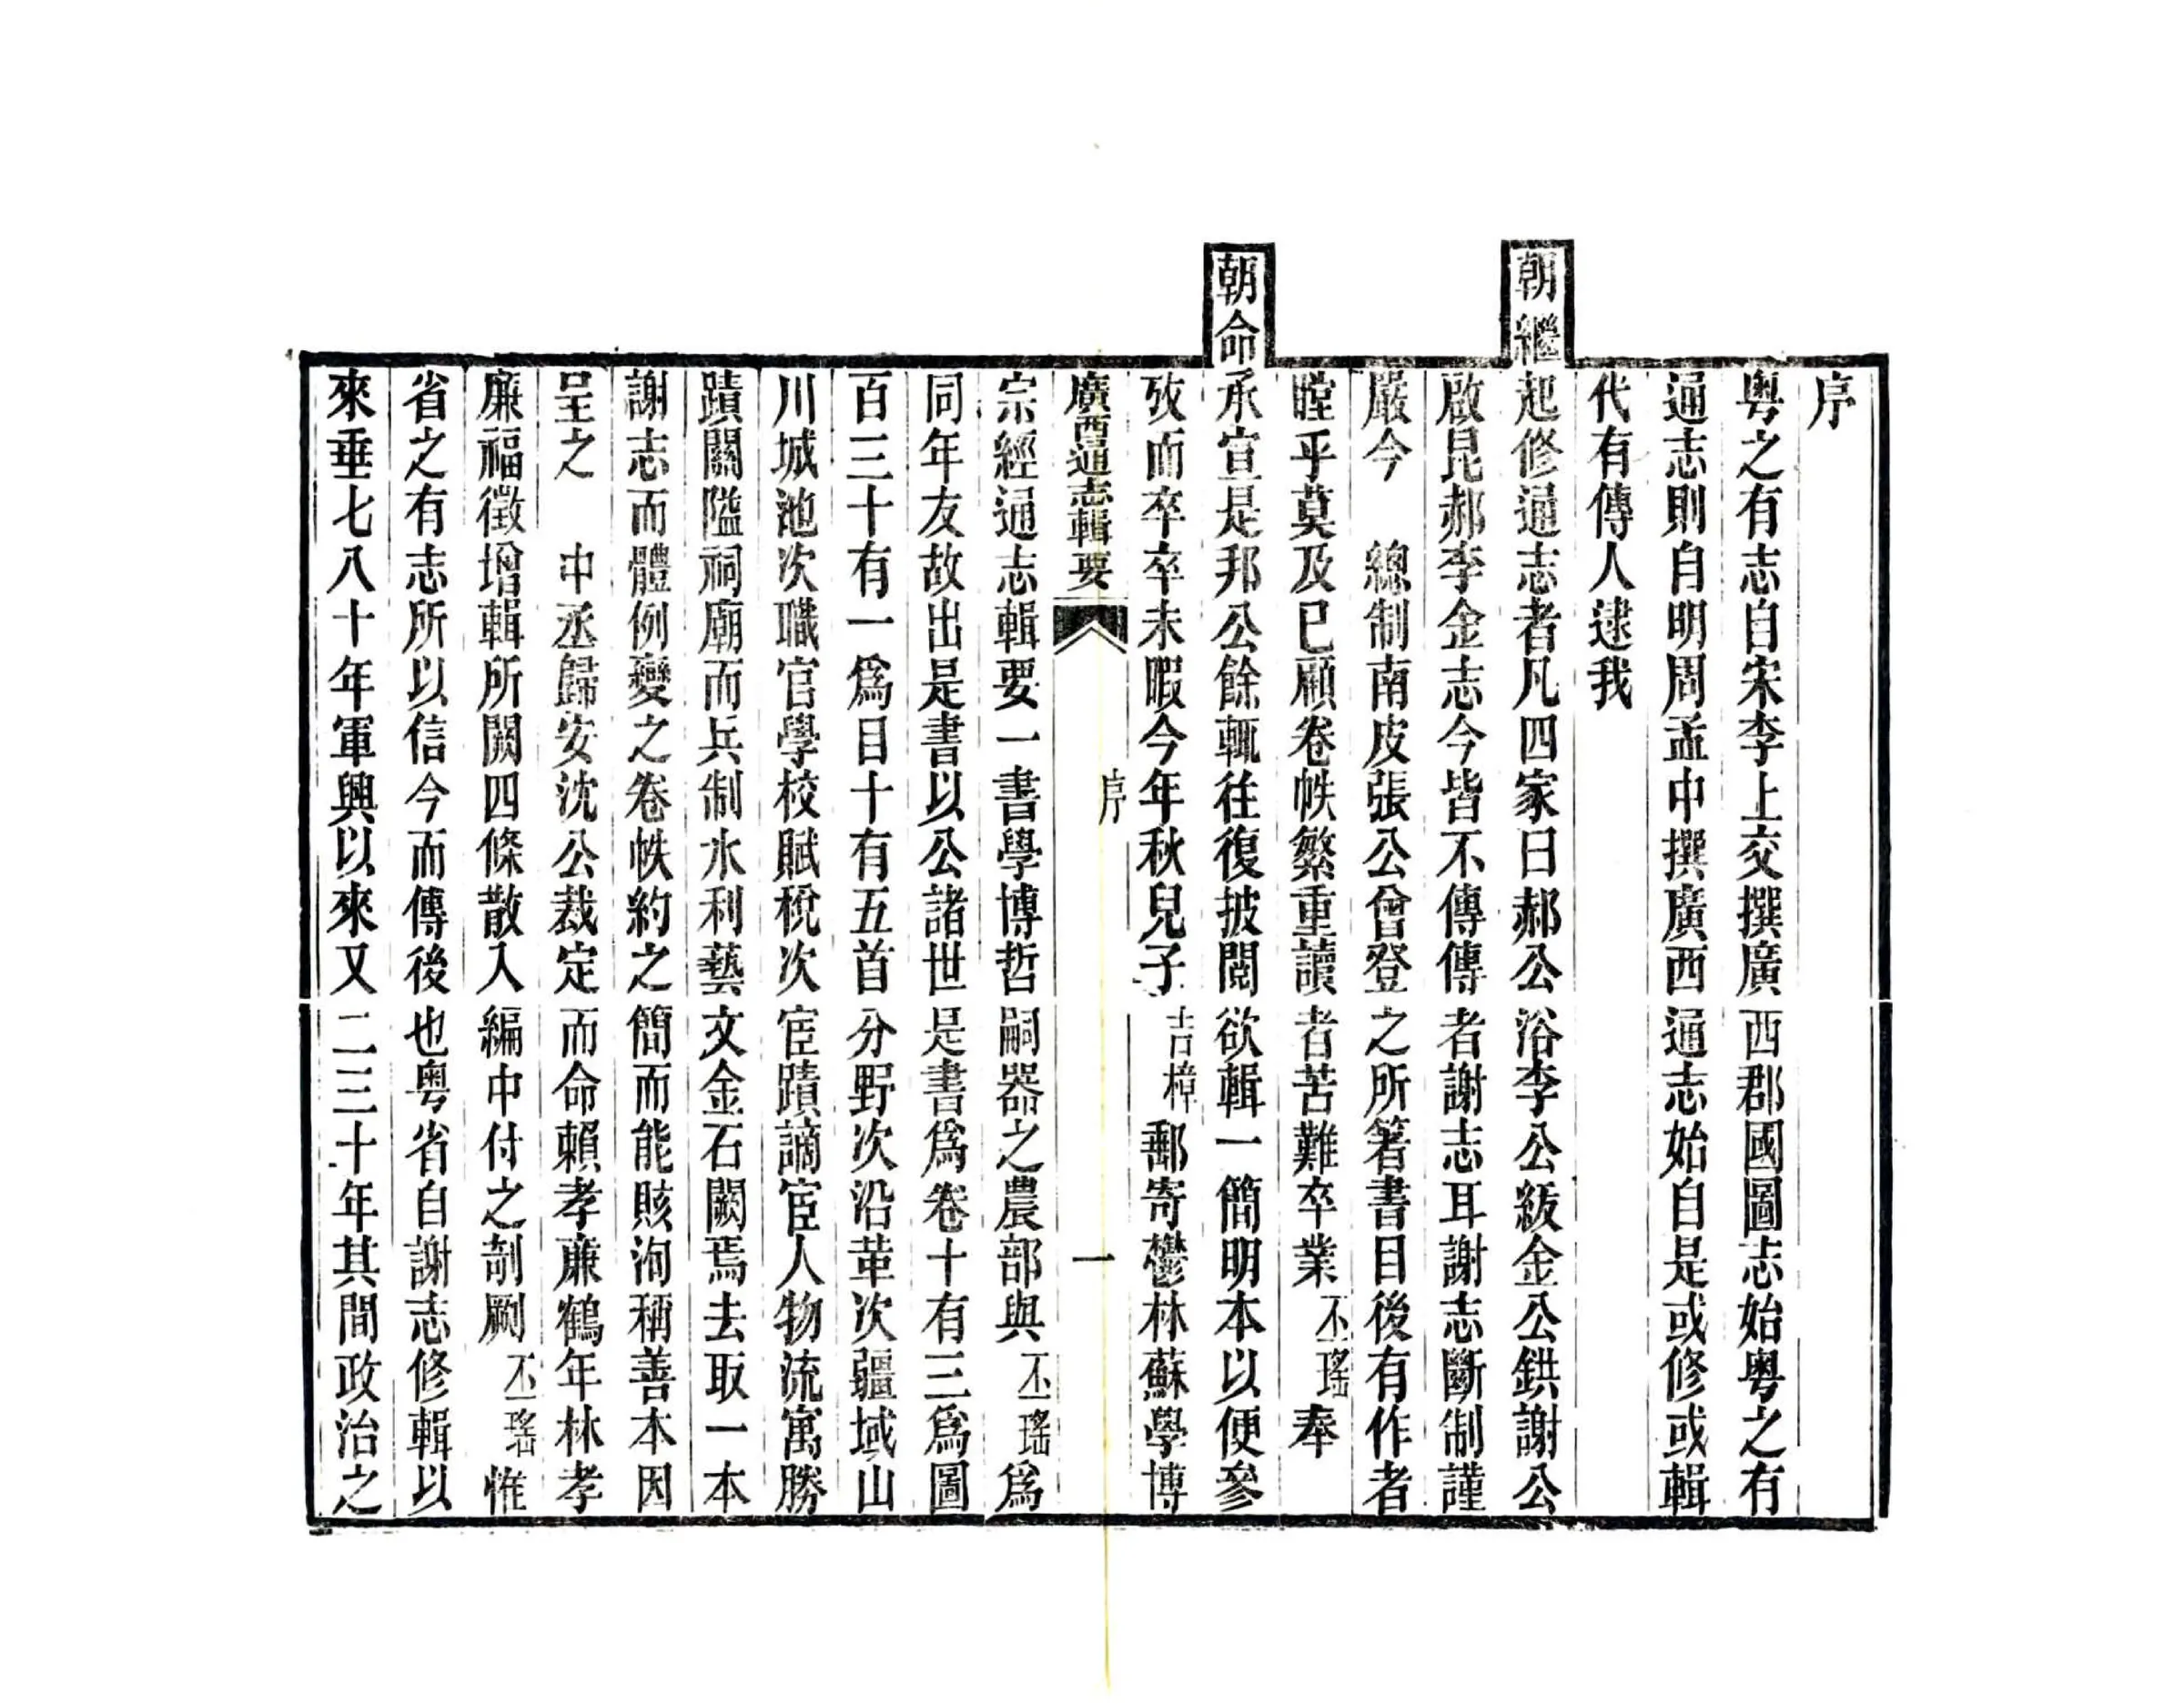 序
粵之有志自宋李上交撰廣西郡國圖志始粵之有
通志則自明周孟中撰廣西通志始自是或修或輯
代有傳人逮我
朝繼起修通志者凡四家曰郝公浴李公紱金公鉷謝公
啟昆郝李金志今皆不傳傳者謝志耳謝志斷制謹
嚴今 總制南皮張公曾登之所箸書目後有作者
瞠乎莫及已顧卷帙繁重讀者苦難卒業丕瑤奉
朝命承宣是邦公餘輒往復披閱欲輯一簡明本以便參
攷而卒卒未暇今年秋兒子吉樟郵寄鬱林蘇學博
廣西通志輯要 序 一
宗經通志輯要一書學博哲嗣器之農部與丕瑤為
同年友故出是書以公諸世是書爲卷十有三爲圖
百三十有一爲目十有五首分野次沿革次疆域山
川城池次職官學校賦稅次宦蹟謫宦人物流寓勝
蹟關隘祠廟而兵制水利藝文金石闕焉去取一本
謝志而體例變之卷帙約之簡而能賅洵稱善本因
呈之 中丞歸安沈公裁定而命賴孝廉鶴年林孝
廉福徵增輯所闕四條散入編中付之剞劂丕瑤惟
省之有志所以信今而傳後也粵省自謝志修輯以
來垂七八十年軍興以來又二三十年其間政治之